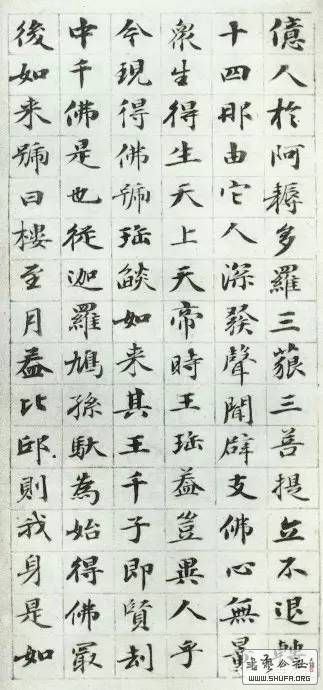 億人於阿耨多羅三藐三菩提立不退轉
十四那由它人深發聲聞辟支佛心無量
衆生得生天上天帝時王珤葢豈異人乎
今現得佛號珤燄如来其王千子即賢刼
中千佛是也從迦羅鳩孫馱為始得佛冣
後如来號曰樓至月葢比邱則我身是如
WWW.SHUFA.ORG